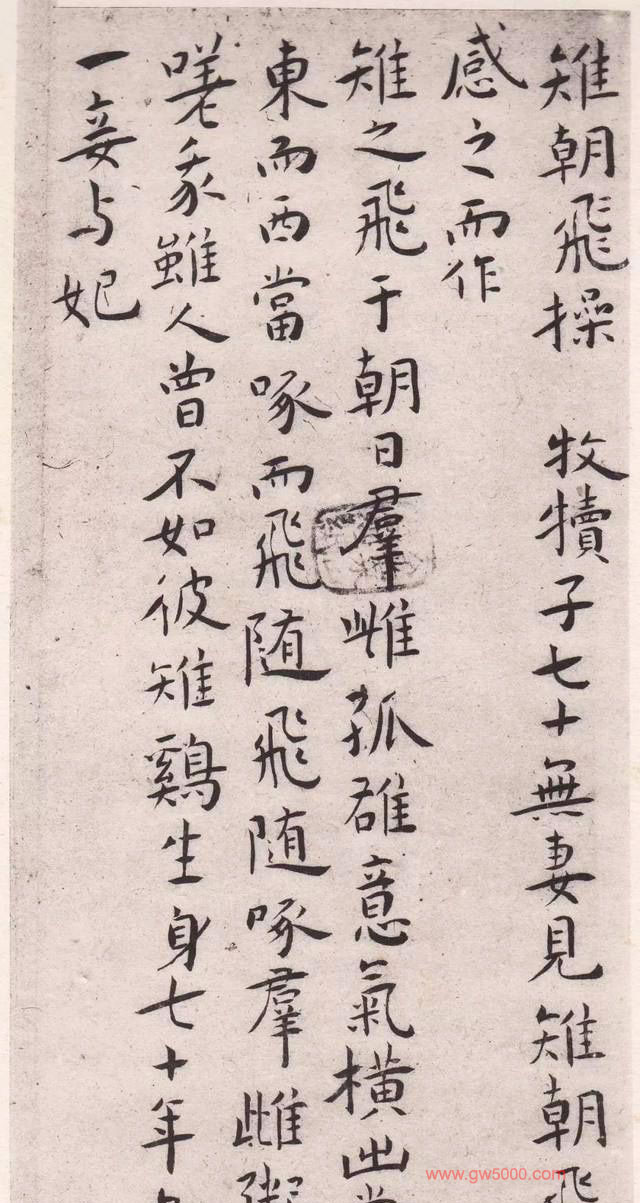 雉朝飛操 牧犢子七十無妻見雉朝飛
感之而作
雉之飛于朝日羣雌孤雄意氣橫出當
東而西當啄而飛随飛随啄羣雌粥
嗟我雖人曾不如彼雉鷄生身七十年
一妾与妃
www.gw5000.com